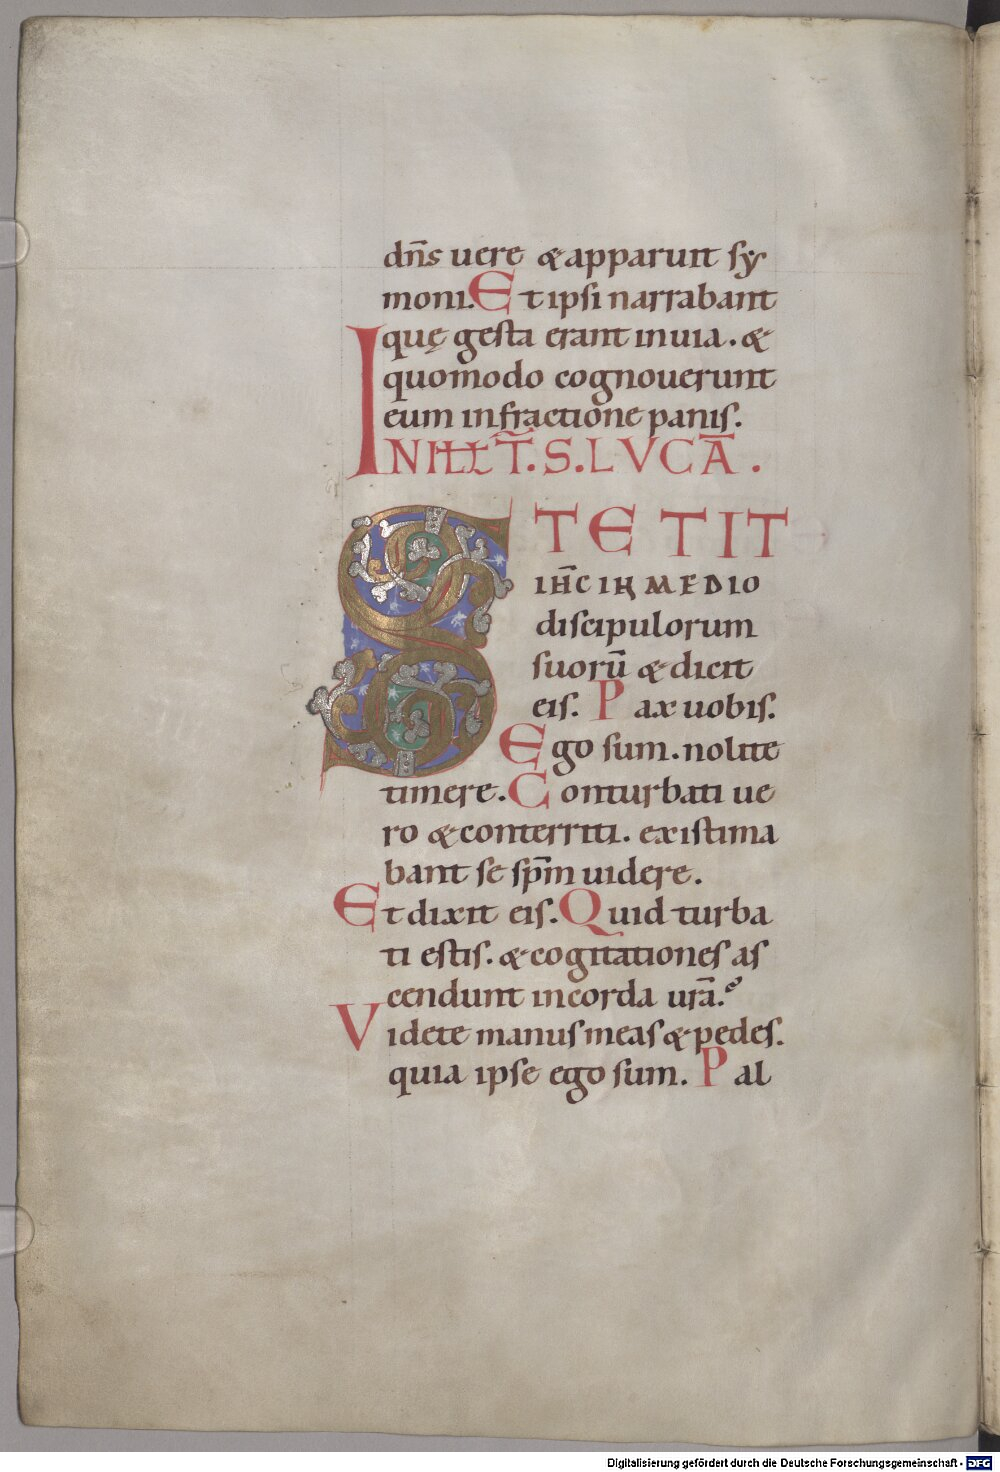 dn̄s uere & apparuit sy
moni. Et ipsi narrabant
quę gesta erant in uia. &
quomodo cognouerunt
eum in fractione panis.
IN ILL T̄. S. LVCĀ.
STETIT
IH̄C IN MEDIO
discipulorum
suorū & dicit
eis. Pax uobis.
Ego sum. nolite
timere. Conturbati ue
ro & conterriti. existima
bant se sp̄m uidere.
Et dixit eis. Quid turba
ti estis. & cogitationes as
cendunt in corda ur̄a.
Videte manus meas & pedes.
quia ipse ego sum. Pal
Digitalisierung gefördert durch die Deutsche Forschungsgemeinschaft - DFG